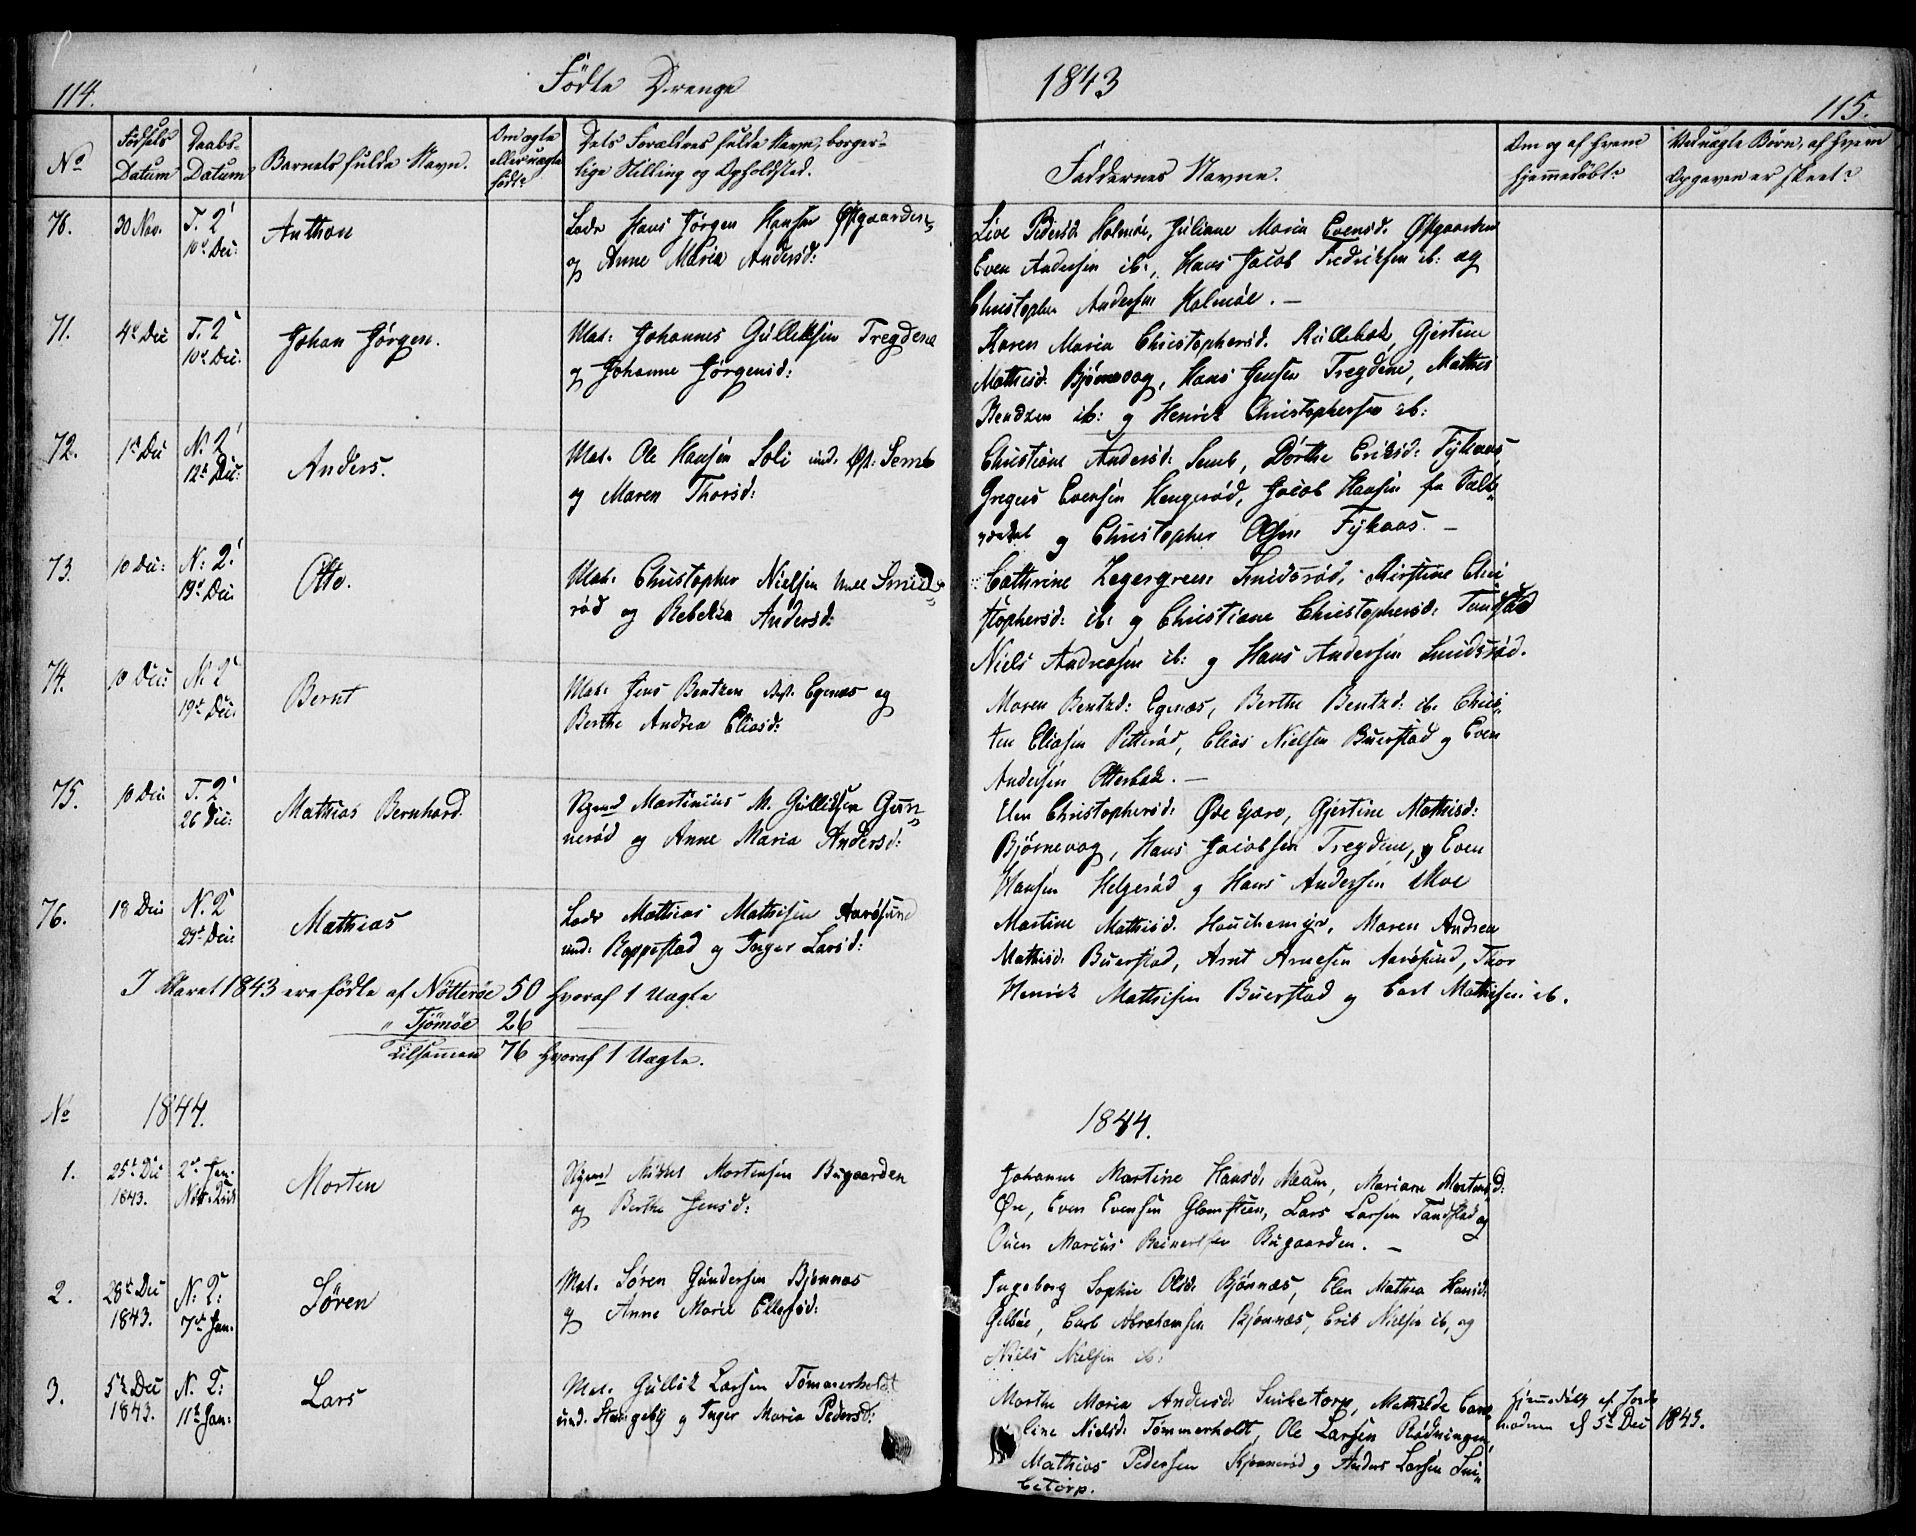 114.
Födte Drenge
1843
115.
No
Födsels Datum
Daabs-Datum
Barnets fulde Navn.
Om ægte eller uægte födt?
Dets Forældres fulde Navn, borger-
lige Stilling og Opholdsted.
Faddernes Navne.
Om og af hvem hjemmedöbt?
Ved uægte Börn, af hvem
Opgaven er skeet?
70.
30 Nov.
T. 2'
10d Dec:
Anthon
Lods Hans Jörgen Hansen Østgaarden
og Anne Maria Andersd:
Live Pedersd: Holmöe, Juliane Maria Evensd. Østgaarden
Even Andersen ib:, Hans Jacob Fredriksen ib: og
Christopher Andersen Holmöe. —
71.
4d Dec
T. 2'
10d Dec:
Johan Jörgen.
Mat: Johannes Gulliksen Tregdene
og Johanne Jörgensd:
Karen Maria Christophersd. Rullebak, Gjertine
Mathisd. Bjørnevag, Hans Jensen Tregdene, Mathis
Bendzen ib: og Henrik Christophersen ib:
72.
1st Dec
N. 2'
12t Dec:
Anders.
Mat. Ole Hansen Soli und. Øst: Semb
og Maren Thorsd:
Christiane Andersd: Semb, Dorthe Eriksd: Fylpaas,
Gregers Evensen Hengsröd, Jacob Hansen fra Salt-
værket og Christopher Olsen Fylpaas. —
73.
10 Dec:
N: 2'
19d Dec.
Otto.
Mat. Christopher Nielsen Smids-
röd og Rebekka Andersd:
Cathrine Zegergreen Smidsröd, Kirstine Chri
stophersd: ib: og Christiane Christophersd: Tandstad
Niels Andreasen ib: og Hans Andersen Smidsröd.
74.
10 Dec:
N. 2'
19d Dec.
Bernt
Mat. Jens Bentzen Egenæs og
Berthe Andrea Eliasd:
Maren Bentzd: Egenæs, Berthe Bentzd: ib. Chris-
ten Eliasen Petteröd, Elias Nielsen Buerstad og Even
Andersen Otterbæk. —
75.
10 Dec
T. 2'
26 Dec:
Mathias Bernhard.
Ngmd Martinius M. Gulliksen Gun-
neröd og Anne Maria Andersd:
Elen Christophersd: Øde Gare, Gjertine Mathisd:
Bjørnevag, Hans Jacobsen Tregdene, og Even
Hansen Helgeröd og Hans Andersen Moe
76.
18 Dec
N. 2'
29d Dec.
Mathias
Lods Mathias Mathisen Aarösund
und. Roppestad og Inger Larsd:
Martine Mathisd. Houchemyr, Maren Andrea
Mathisd: Buerstad, Arnt Arnesen Aarösund, Thor
Henrik Mathisen Buerstad og Carl Mathisen ib.
I Aaret 1843 ere födte af Nötteröe 50 hvoraf 1 Uægte
" Tjömöe 26
Tilsamen 76 hvoraf 1 Uægte.
No
1844.
1844.
1.
25d Dec
1843.
2d Jan.
Morten
Ngmd Mikkel Mortensen Bugaarden
og Berthe Jensd:
Johanne Martine Hansd. Meum, Mariane Mortensd:
Øre, Even Evensen Glomsteen, Lars Larsen Tandstad og
Ouen Marcus Reinertsen Bugaarden. —
2.
28d Dec
1843.
N: 2:
7d Jan.
Sören
Mat. Sören Gundersen Bjønnæs
og Anne Marie Ellefsd:
Ingeborg Sophie Olsd: Bjønnæs, Elen Mathea Hansd:
Gilböe, Carl Abrahamsen Bjønnæs, Erik Nielsen ib, og
Niels Nielsen ib:
3.
5t Dec
1843.
N. 2:
11t Jan:
Lars
Mat. Gullik Larsen Tömmerholdt
und: Stangeby og Inger Maria Pedersd:
Marthe Maria Andersd: Smibetorp, Mathilde Caro-
line Nielsd: Tömmerholdt, Ole Larsen Rödningen,
Mathias Pedersen Kjönneröd og Anders Larsen Smi-
betorp.
hjemmedöbt af Jorde
moderen d 5t Dec 1843.